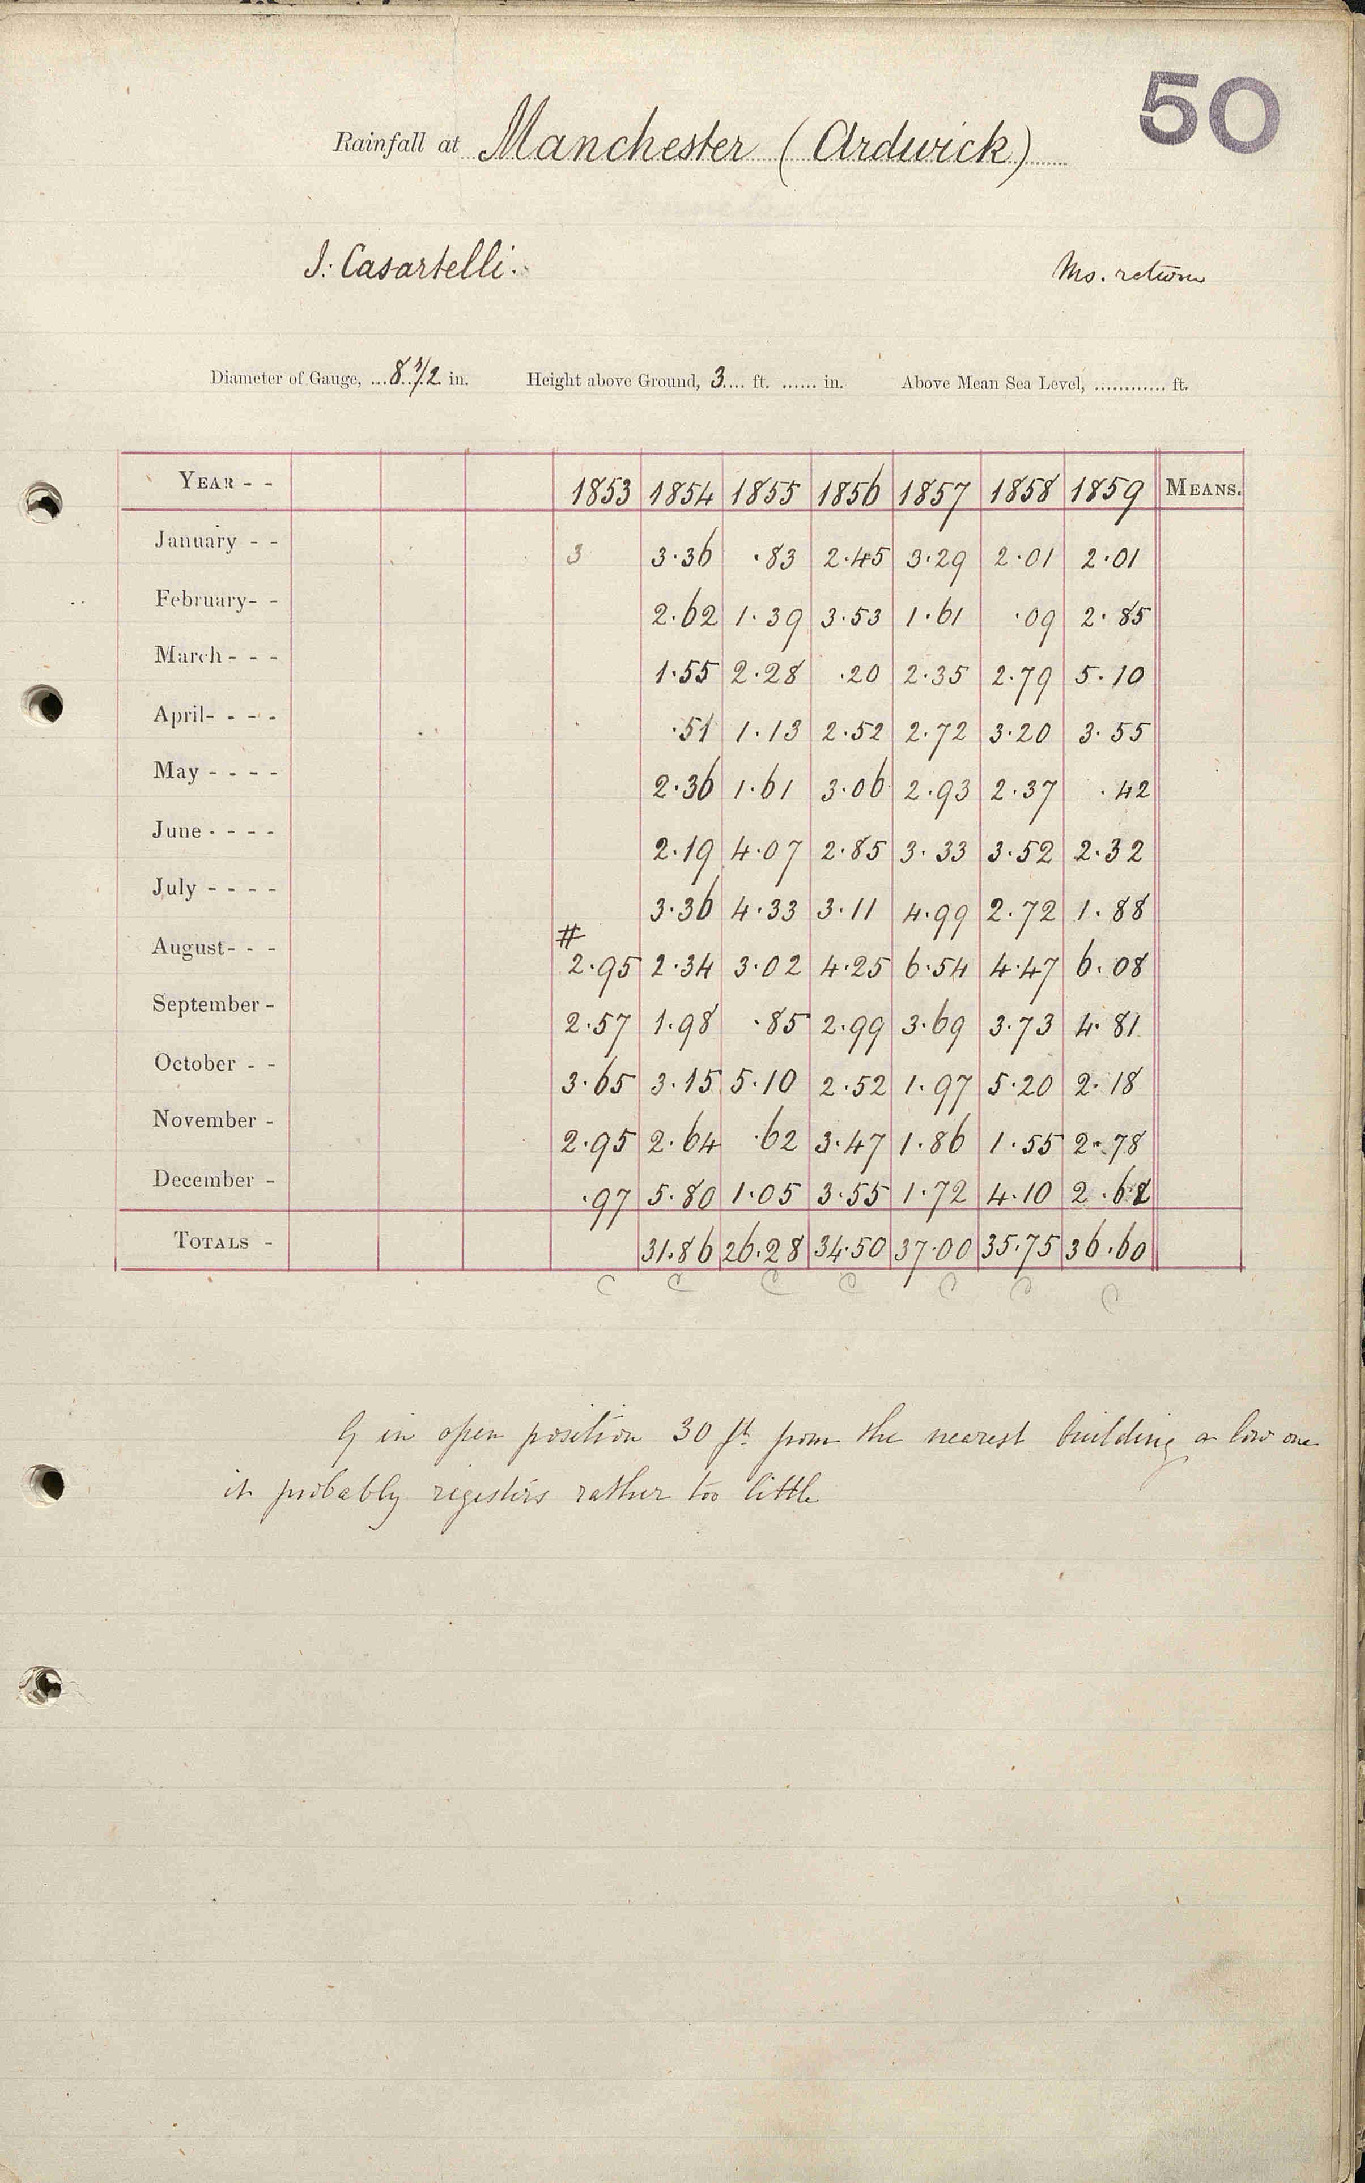 50
Rainfall at Manchester (Ardwick)
J. Casartelli. Ms. return
Diameter of Gauge, ...8 1/2 in. Height above Ground, 3.... ft. ...... in. Above Mean Sea Level, ............ ft.
YEAR - - 1853 1854 1855 1856 1857 1858 1859 MEANS.
January - - 3 3.36 .83 2.45 3.29 2.01 2.01
February- - 2.62 1.39 3.53 1.61 .09 2.85
March - - - 1.55 2.28 .20 2.35 2.79 5.10
April- - - - .51 1.13 2.52 2.72 3.20 3.55
May - - - - 2.36 1.61 3.06 2.93 2.37 .42
June - - - - 2.19 4.07 2.85 3.33 3.52 2.32
July - - - - 3.36 4.33 3.11 4.99 2.72 1.88
#
August- - - 2.95 2.34 3.02 4.25 6.54 4.47 6.08
September - 2.57 1.98 .85 2.99 3.69 3.73 4.81
October - - 3.65 3.15 5.10 2.52 1.97 5.20 2.18
November - 2.95 2.64 .62 3.47 1.86 1.55 2.78
December - .97 5.80 1.05 3.55 1.72 4.10 2.62
TOTALS - 31.86 26.28 34.50 37.00 35.75 36.60
C C C C C C C
G in open position 30 ft from the nearest building a low one
it probably registers rather too little